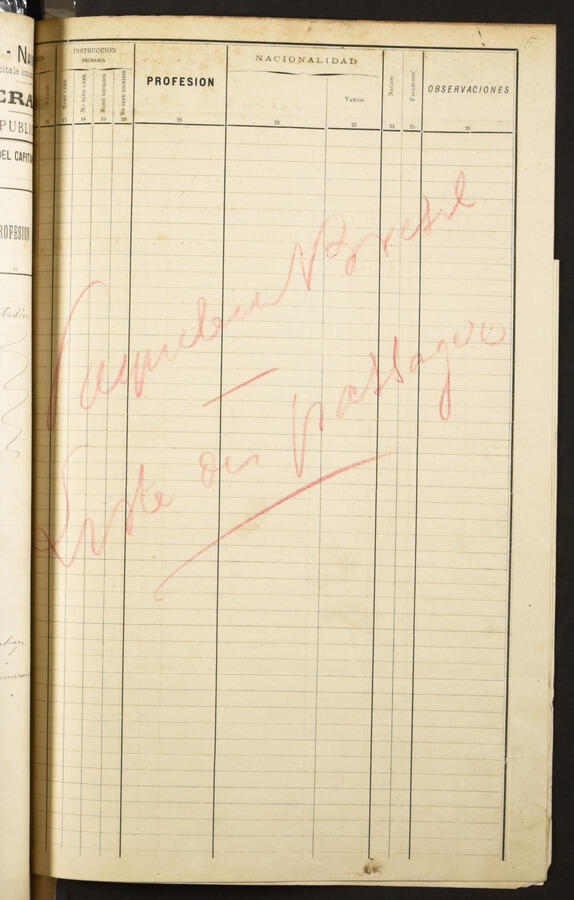 15
INSTRUCCION
PRIMARIA
NACIONALIDAD
PROFESION
OBSERVACIONES
SABE LEER
NO SABE LEER
SABE ESCRIBIR
NO SABE ESCRIBIR
VARIOS
NACIDO
FALLECIDO
16 17 18 19 20 21 22 23 24 25 26
- NA
ERA
PUBLI
DEL CAPITA
ROFESION
Paquebeau Bresil
Liste des passagers